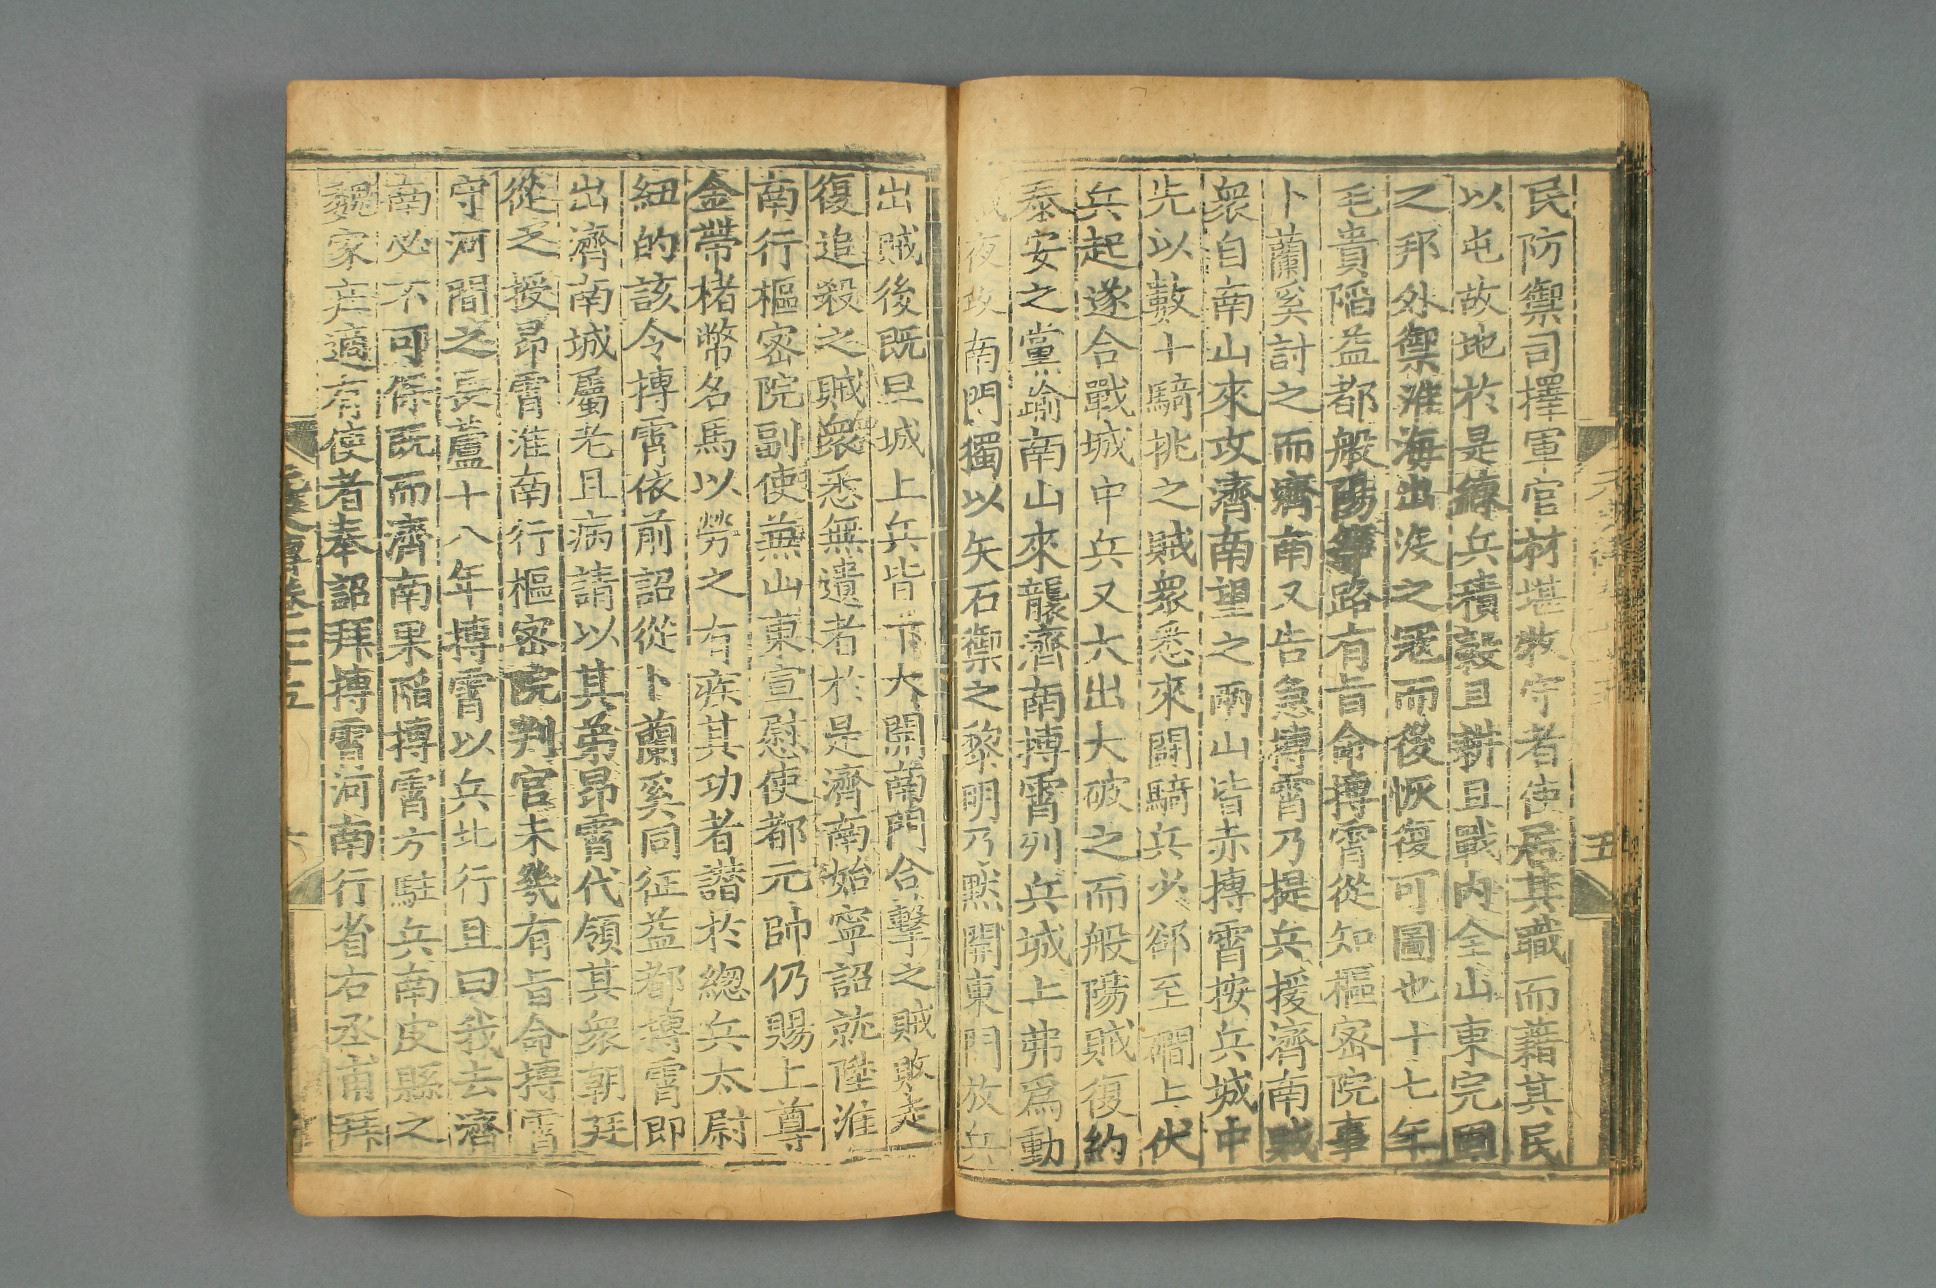 民防禦司擇軍官材堪牧守者使居其職而藉其民
以屯故地於是練兵積穀且耕且戰內全山東完固
之邦外禦淮海出沒之寇而後恢復可圖也十七年
毛貴陷益都般陽等路有旨命搏霄從知樞密院事
卜蘭奚討之而濟南又告急搏霄乃提兵援濟南賊
衆自南山來攻濟南望之兩山皆赤搏霄按兵城中
先以數十騎挑之賊衆悉來鬬騎兵少郤至磵上伏
兵起遂合戰城中兵又大出大破之而般陽賊復約
泰安之黨踰南山來襲濟南搏霄列兵城上弗爲動
賊夜攻南門獨以矢石禦之黎明乃默開東門放兵
五
出賊後既旦城上兵皆下大開南門合擊之賊敗走
復追殺之賊衆悉無遺者於是濟南始寧詔就陞淮
南行樞密院副使兼山東宣慰使都元帥仍賜上尊
金帶楮幣名馬以勞之有疾其功者譖於總兵太尉
紐的該令搏霄依前詔從卜蘭奚同征益都搏霄即
出濟南城屬老且病請以其弟昂霄代領其衆朝廷
從之授昂霄淮南行樞密院判官未幾有旨命搏霄
守河間之長蘆十八年搏霄以兵北行且曰我去濟
南必不可保既而濟南果陷搏霄方駐兵南皮縣之
魏家庄適有使者奉詔拜搏霄河南行省右丞甫拜
元史傳卷七十五
六